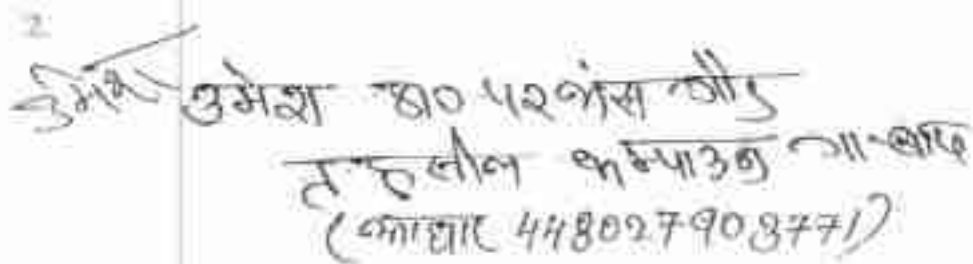 2
उमेश उमेश S/O परवंस गौड़
तहसील कम्पाउन्ड गा०बाद
(आधार 448027903771)